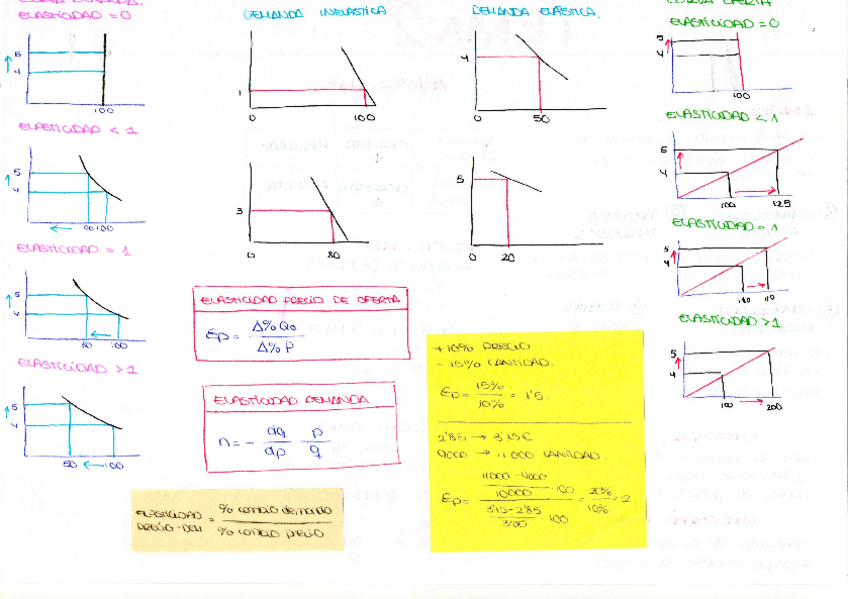 ELASTICIDAD = 0
5
4
100
ELASTICIDAD < 1
5
4
90 100
ELASTICIDAD = 1
5
4
80
100
ELASTICIDAD > 1
5
4
50
100
DEMANDA INELASTICA
1
0
100
3
0
80
DEMANDA ELÁSTICA.
4
0
50
5
0
20
CURVA OFERTA
ELASTICIDAD = 0
5
4
100
ELASTICIDAD < 1
4
100
125
ELASTICIDAD = 1
5
4
110
ELASTICIDAD > 1
5
4
100
200
ELASTICIDAD PRECIO DE OFERTA
Ep = Δ% Qo
Δ% P
ELASTICIDAD DEMANDA
n = - dq p
dp q
ELASTICIDAD = % cambio demanda
PRECIO - DEM % cambio precio
+ 10% PRECIO
- 15% CANTIDAD.
Ep = 15% = 1'5.
10%
2'85 → 3'15 €
9000 → 11000 CANTIDAD.
11000 - 9000
10000 · 100
Ep = = 20% = 2.
10%
3'15 - 2'85 · 100
3'00